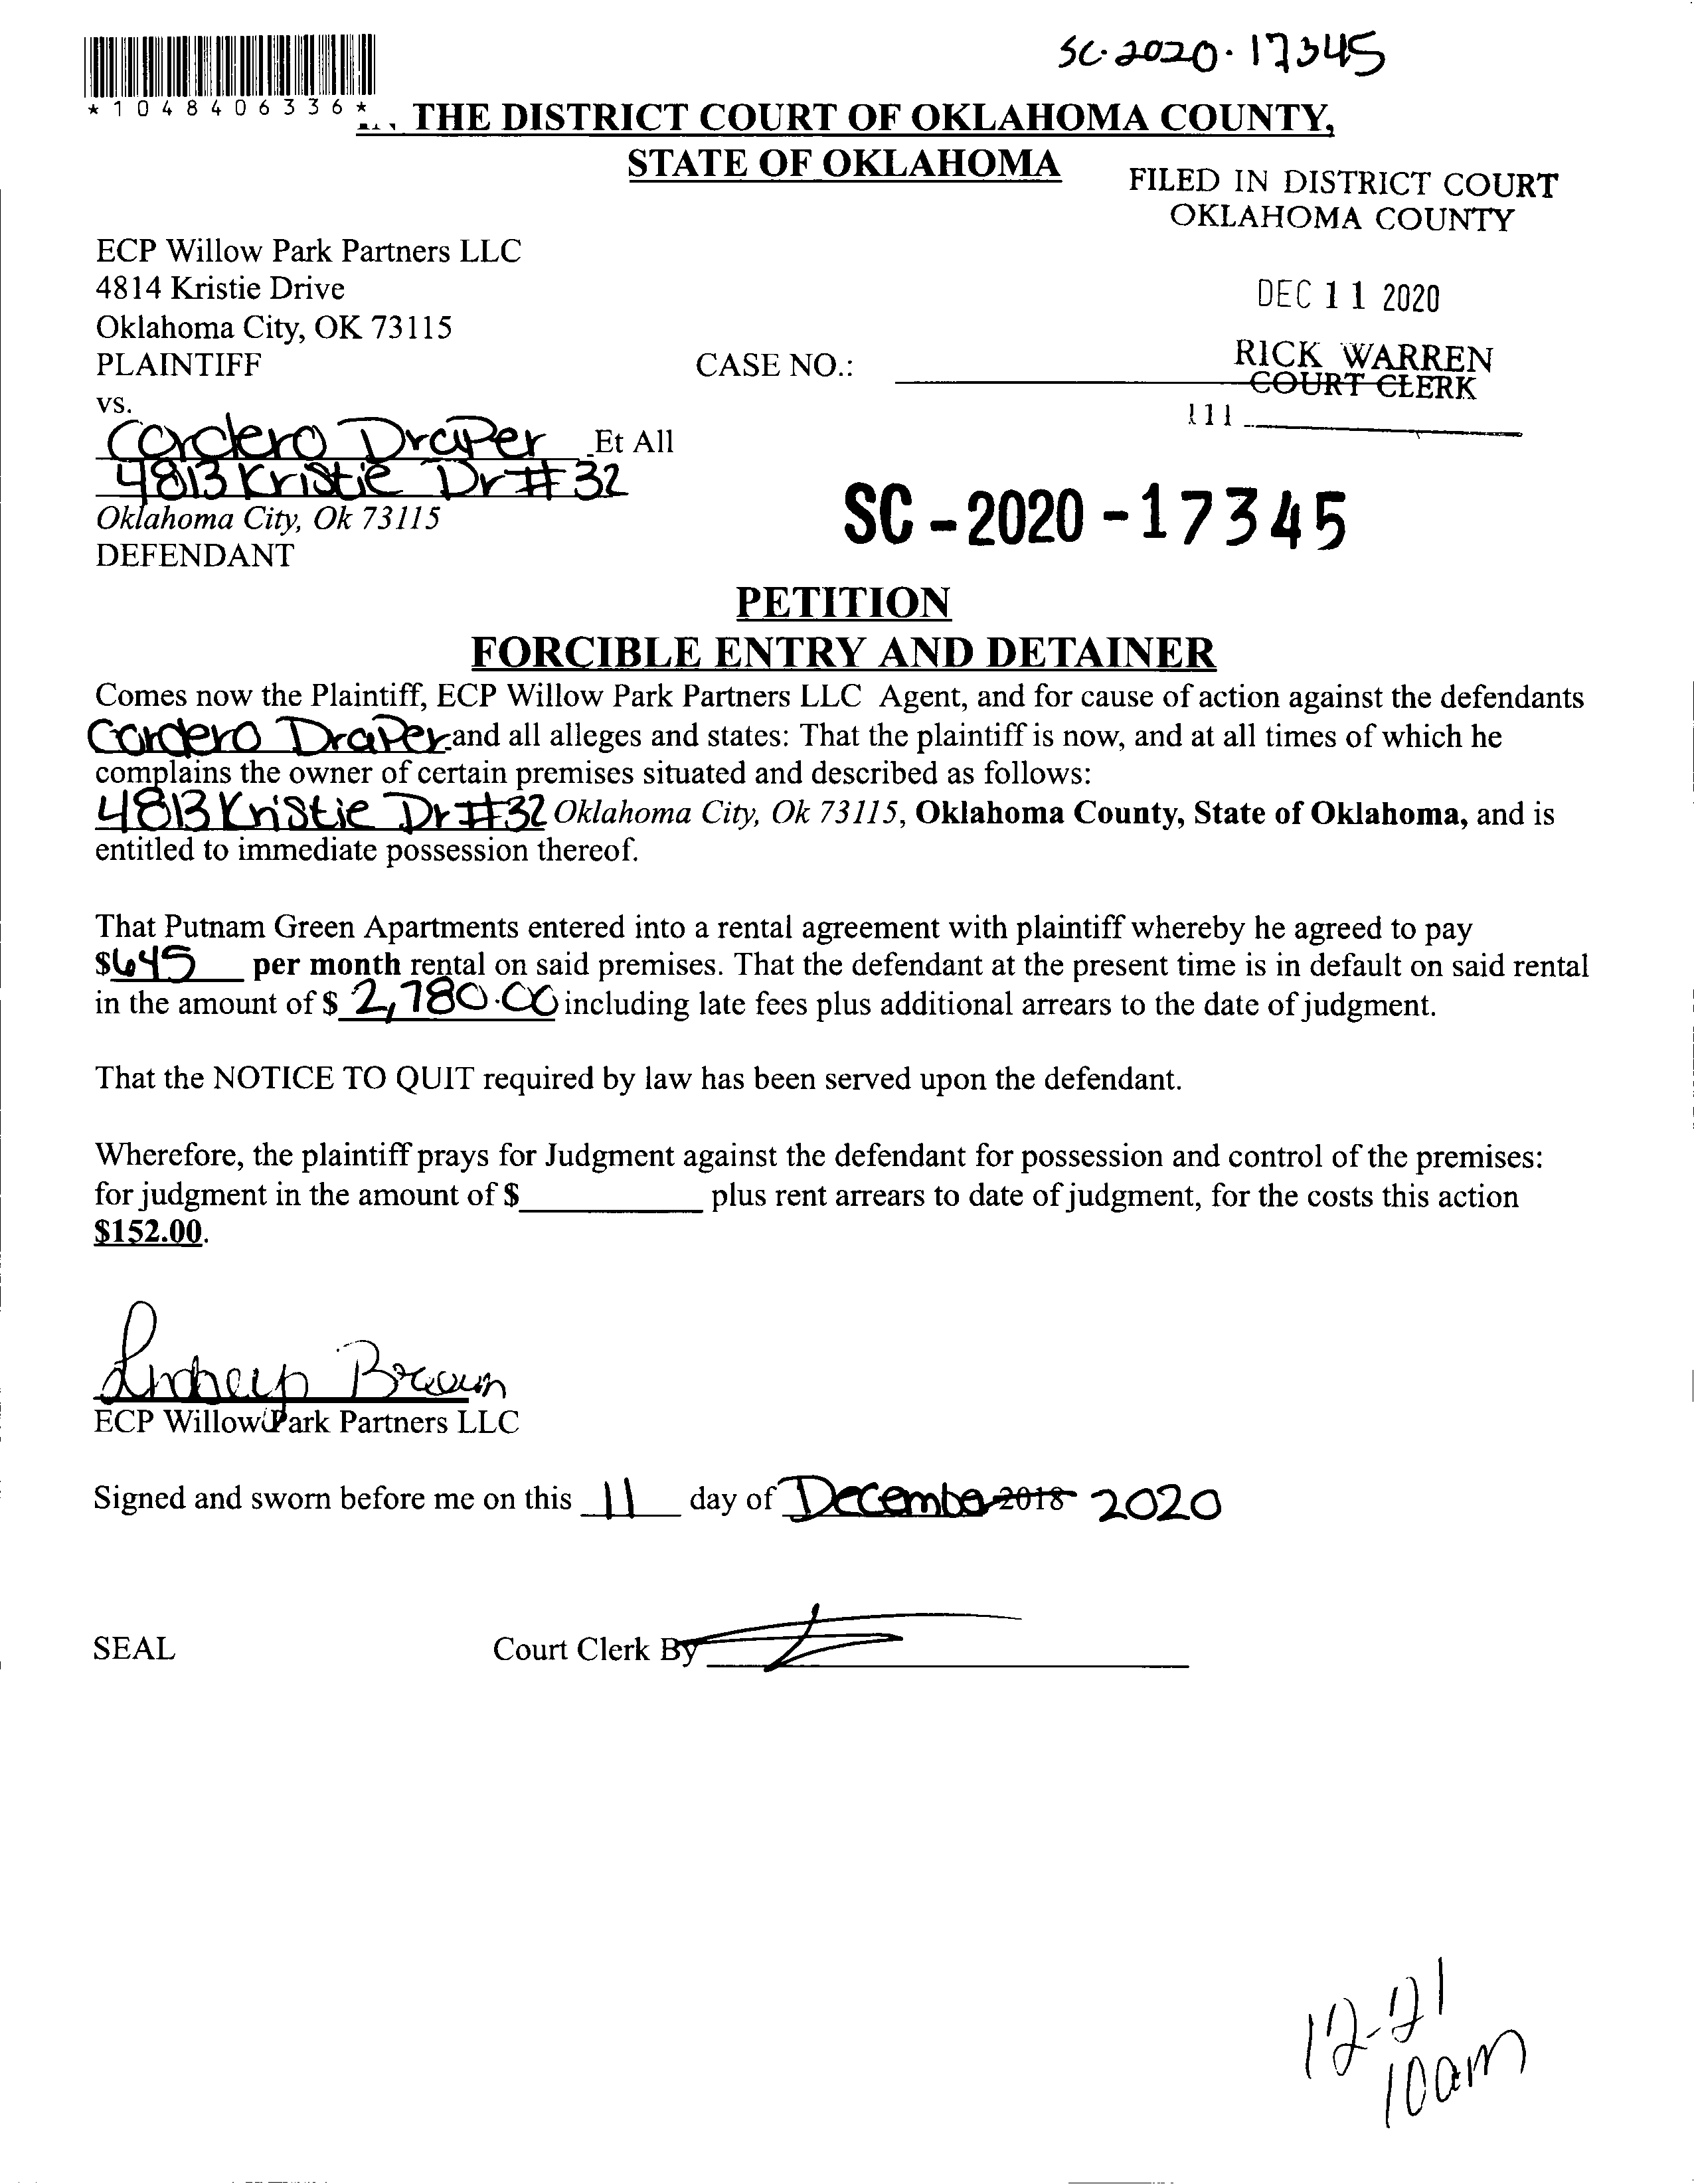 SC-2020-17345
*1048406336*
THE DISTRICT COURT OF OKLAHOMA COUNTY,
STATE OF OKLAHOMA
FILED IN DISTRICT COURT
OKLAHOMA COUNTY
ECP Willow Park Partners LLC
4814 Kristie Drive
DEC 11 2020
Oklahoma City, OK 73115
PLAINTIFF
CASE NO.:
RICK WARREN
COURT CLERK
vs.
111
Cordero Draper Et All
4813 Kristie Dr #32
Oklahoma City, Ok 73115
SC-2020-17345
DEFENDANT
PETITION
FORCIBLE ENTRY AND DETAINER
Comes now the Plaintiff, ECP Willow Park Partners LLC Agent, and for cause of action against the defendants
Cordero Draper and all alleges and states: That the plaintiff is now, and at all times of which he
complains the owner of certain premises situated and described as follows:
4813 Kristie Dr #32 Oklahoma City, Ok 73115, Oklahoma County, State of Oklahoma, and is
entitled to immediate possession thereof.
That Putnam Green Apartments entered into a rental agreement with plaintiff whereby he agreed to pay
$645 per month rental on said premises. That the defendant at the present time is in default on said rental
in the amount of $ 2,780.00 including late fees plus additional arrears to the date of judgment.
That the NOTICE TO QUIT required by law has been served upon the defendant.
Wherefore, the plaintiff prays for Judgment against the defendant for possession and control of the premises:
for judgment in the amount of $ plus rent arrears to date of judgment, for the costs this action
$152.00.
Lindsey Brown
ECP Willow Park Partners LLC
Signed and sworn before me on this 11 day of December 2018 2020
SEAL
Court Clerk By
12-21
10am